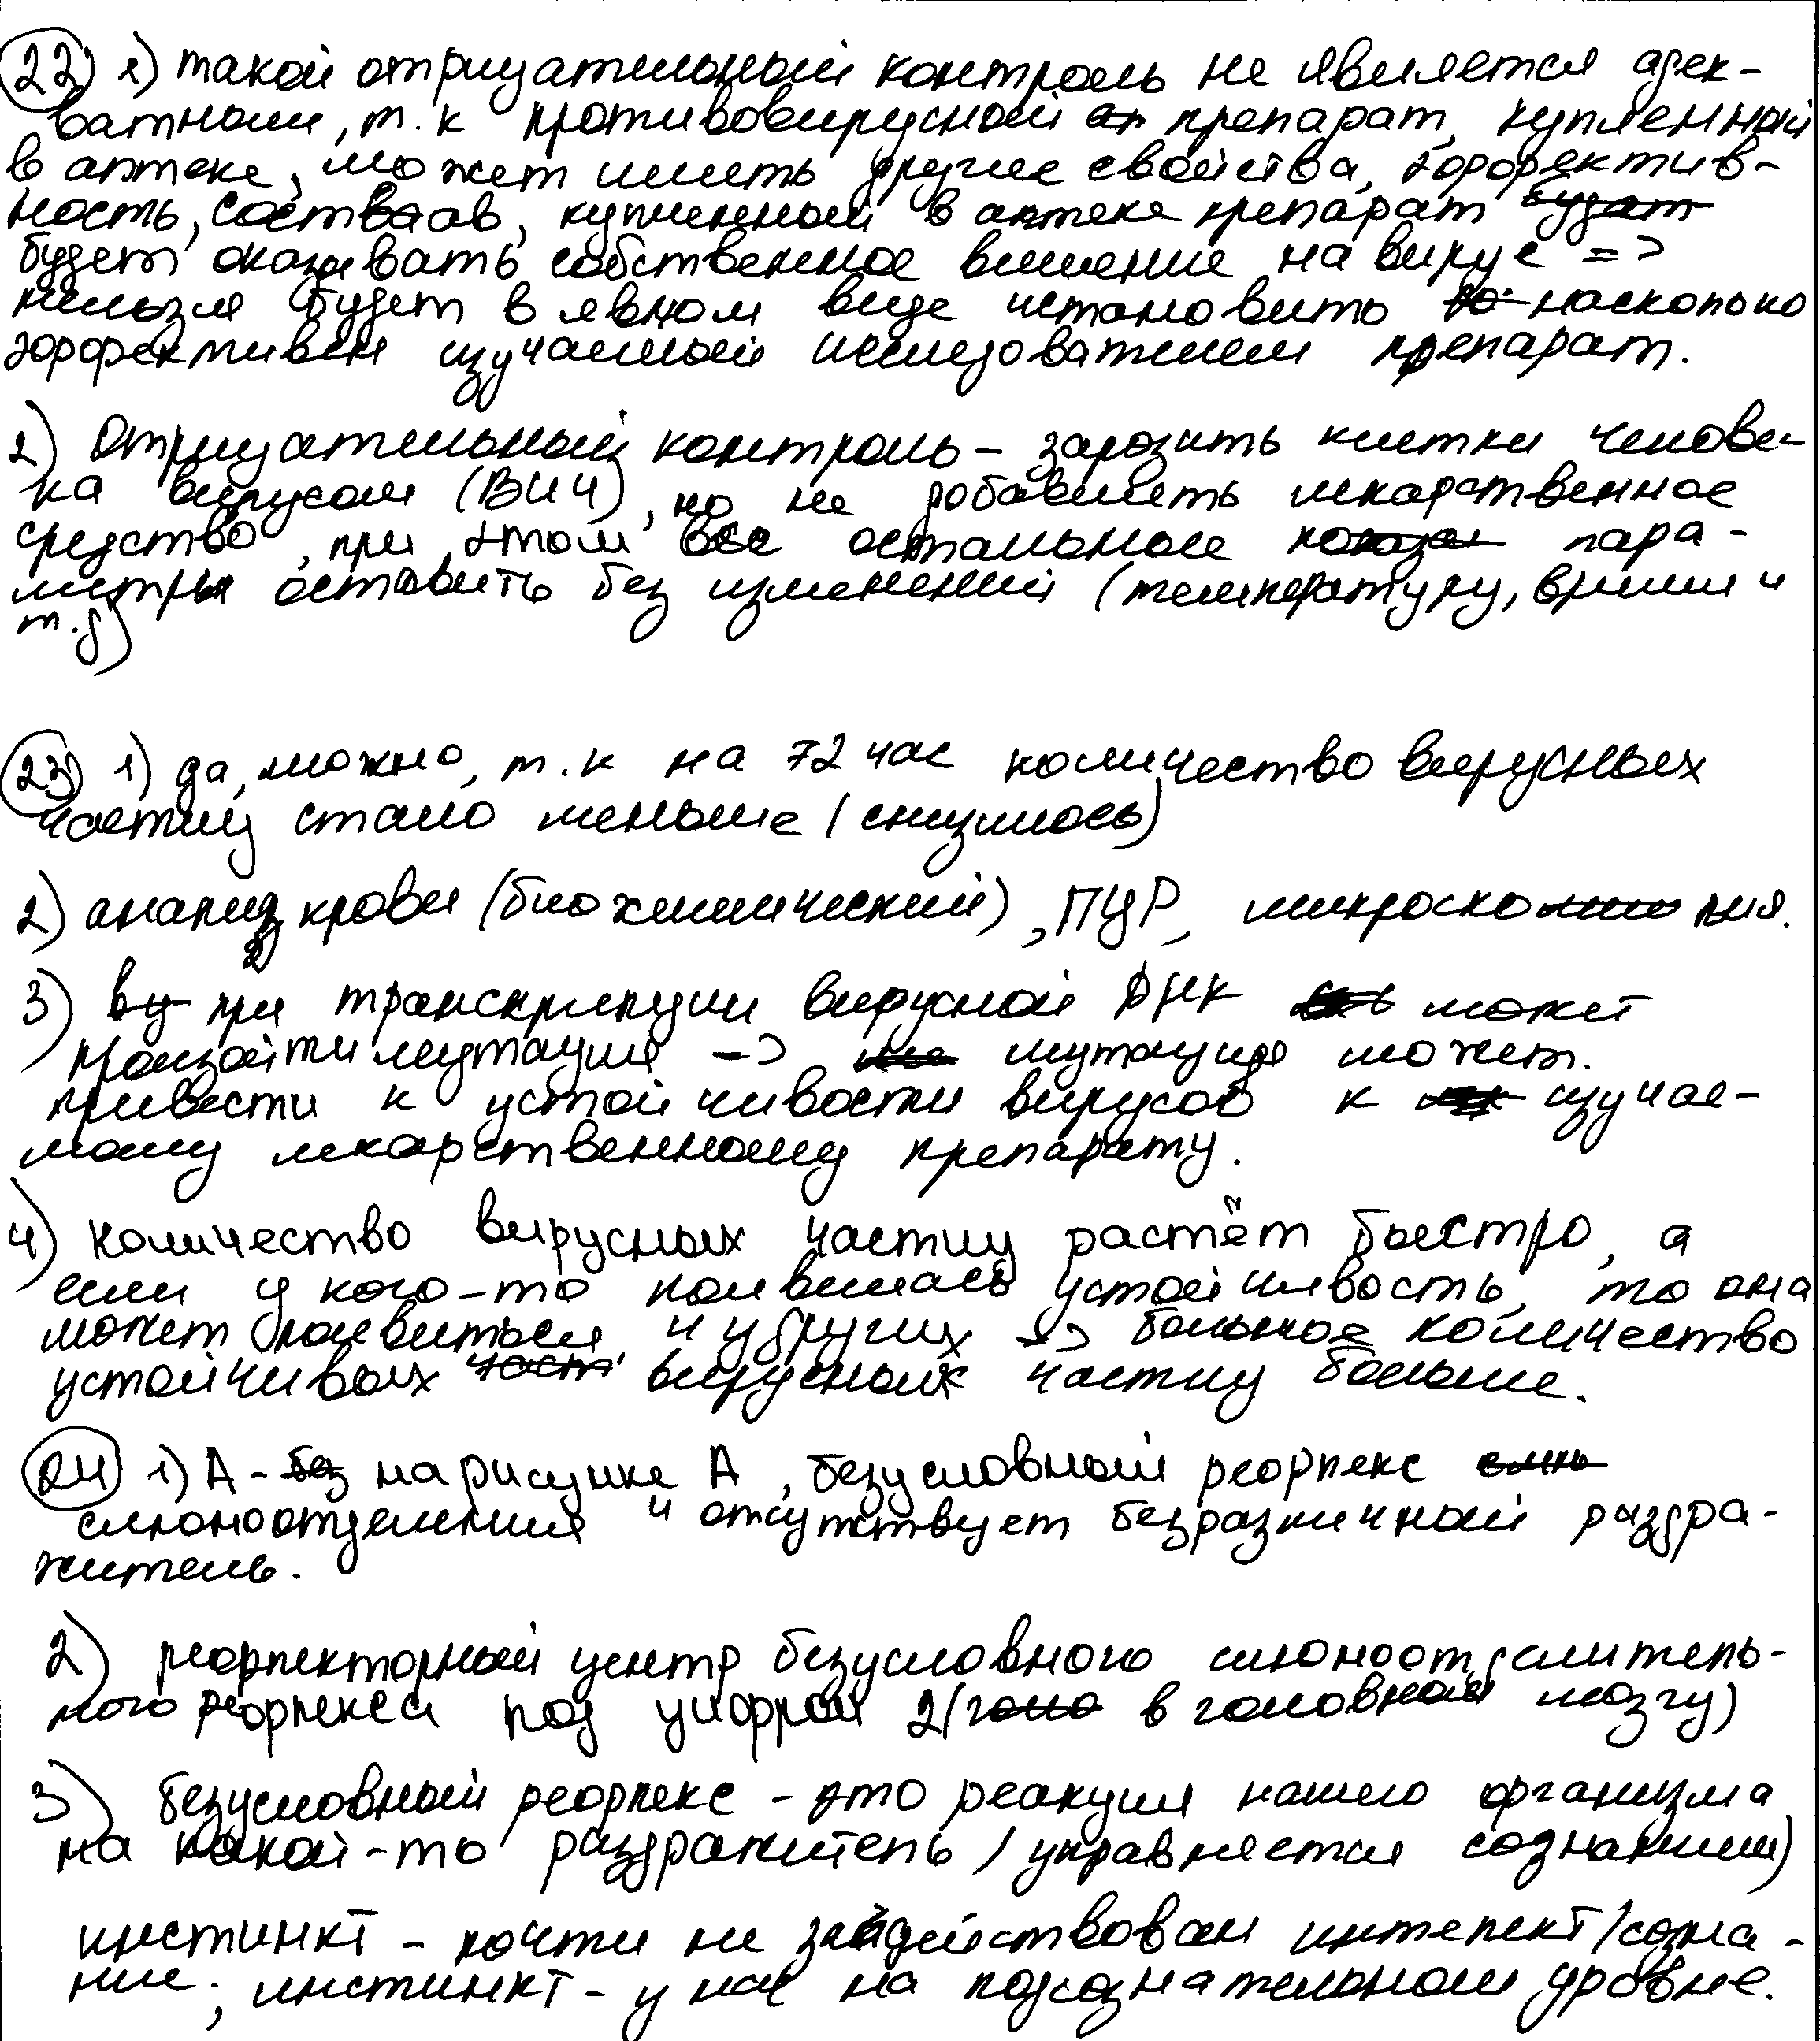 22 1) такой отрицательный контроль не является адек-
ватным, т.к противовирусный препарат, купленный
в аптеке, может иметь другие свойства, эффектив-
ность, состав, купленный в аптеке препарат будет
будет оказывать собственное влияние на вирус =>
нельзя будет в явном виде установить насколько
эффективен изучаемый исследователем препарат.
2) Отрицательный контроль - заразить клетки челове-
ка вирусом (ВИЧ), но не добавлять лекарственное
средство, при этом все остальные пара-
метры оставить без изменений (температуру, время и
т.д)
23 1) да, можно, т.к на 72 час количество вирусных
частиц стало меньше (снизилось)
2) анализ крови (биохимический), ПЦР, микроскопия.
3) при транскрипции вирусной РНК может
произойти мутация => мутация может
привести к устойчивости вирусов к изучае-
мому лекарственному препарату.
4) количество вирусных частиц растёт быстро, а
если у кого-то появилась устойчивость, то она
может появиться и у других => большое количество
устойчивых част вирусных частиц больше.
24 1) А - без на рисунке А, безусловный рефлекс
слюноотделения и отсутствует безразличный раздра-
житель.
2) рефлекторный центр безусловного слюноотделитель-
ного рефлекса под цифрой 2 (в головном мозгу)
3) безусловный рефлекс - это реакция нашего организма
на какой-то раздражитель (управляется сознанием)
инстинкт - почти не задействован интелект/созна-
ние; инстинкт - у нас на подсознательном уровне.